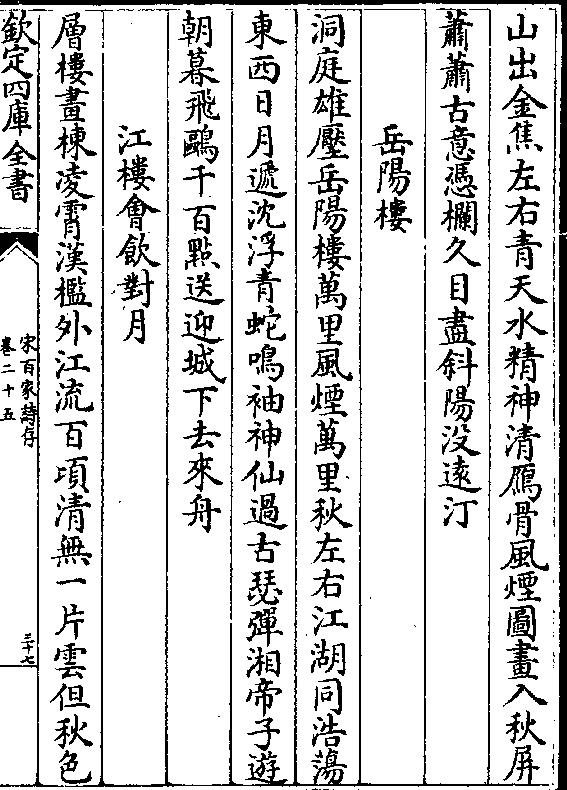 山出金焦左右青天水精神清鴈骨風煙圖畫入秋屏
蕭蕭古意憑欄久目盡斜陽没遠汀
岳陽樓
洞庭雄壓岳陽樓萬里風煙萬里秋左右江湖同浩蕩
東西日月遞沈浮青蛇鳴袖神仙過古瑟彈湘帝子遊
朝暮飛鷗千百點送迎城下去來舟
江樓會飲對月
層樓畫棟凌霄漢檻外江流百頃清無一片雲但秋色
欽定四庫全書
宋百家詩存
卷二十五
三十七